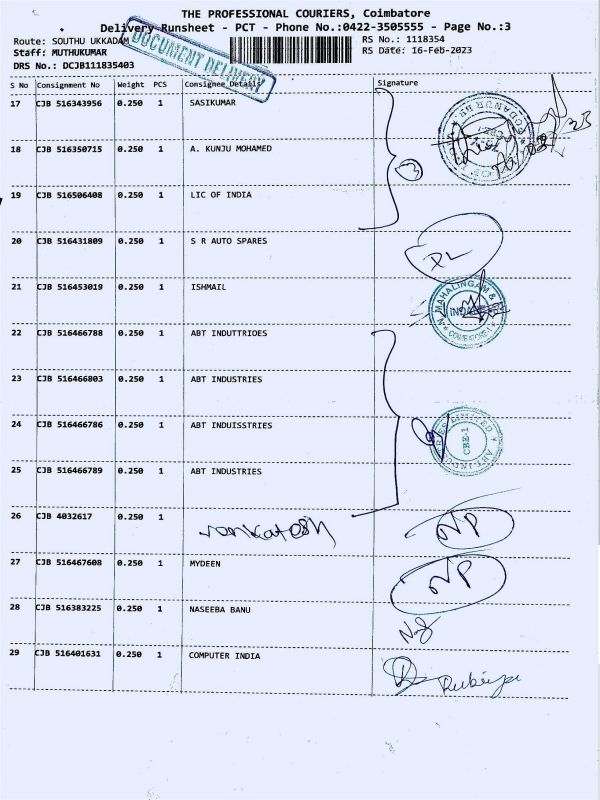 THE PROFESSIONAL COURIERS, Coimbatore
Delivery Runsheet - PCT - Phone No.:0422-3505555 - Page No.:3
Route: SOUTHU UKKADAM
RS No.: 1118354
Staff: MUTHUKUMAR
RS Date: 16-Feb-2023
DRS No.: DCJB111835403
DOCUMENT DELIVERY
S No Consignment No Weight PCS Consignee Details Signature
17 CJB 516343956 0.250 1 SASIKUMAR
18 CJB 516350715 0.250 1 A. KUNJU MOHAMED
3
19 CJB 516506408 0.250 1 LIC OF INDIA
20 CJB 516431809 0.250 1 S R AUTO SPARES
21 CJB 516453019 0.250 1 ISHMAIL
N MAHALINGAM &
COIMBATORE-1
22 CJB 516466788 0.250 1 ABT INDUTTRIOES
23 CJB 516466803 0.250 1 ABT INDUSTRIES
24 CJB 516466786 0.250 1 ABT INDUISSTRIES
CBE-1
25 CJB 516466789 0.250 1 ABT INDUSTRIES
26 CJB 4032617 0.250 1 NP
27 CJB 516467608 0.250 1 MYDEEN NP
28 CJB 516383225 0.250 1 NASEEBA BANU
29 CJB 516401631 0.250 1 COMPUTER INDIA